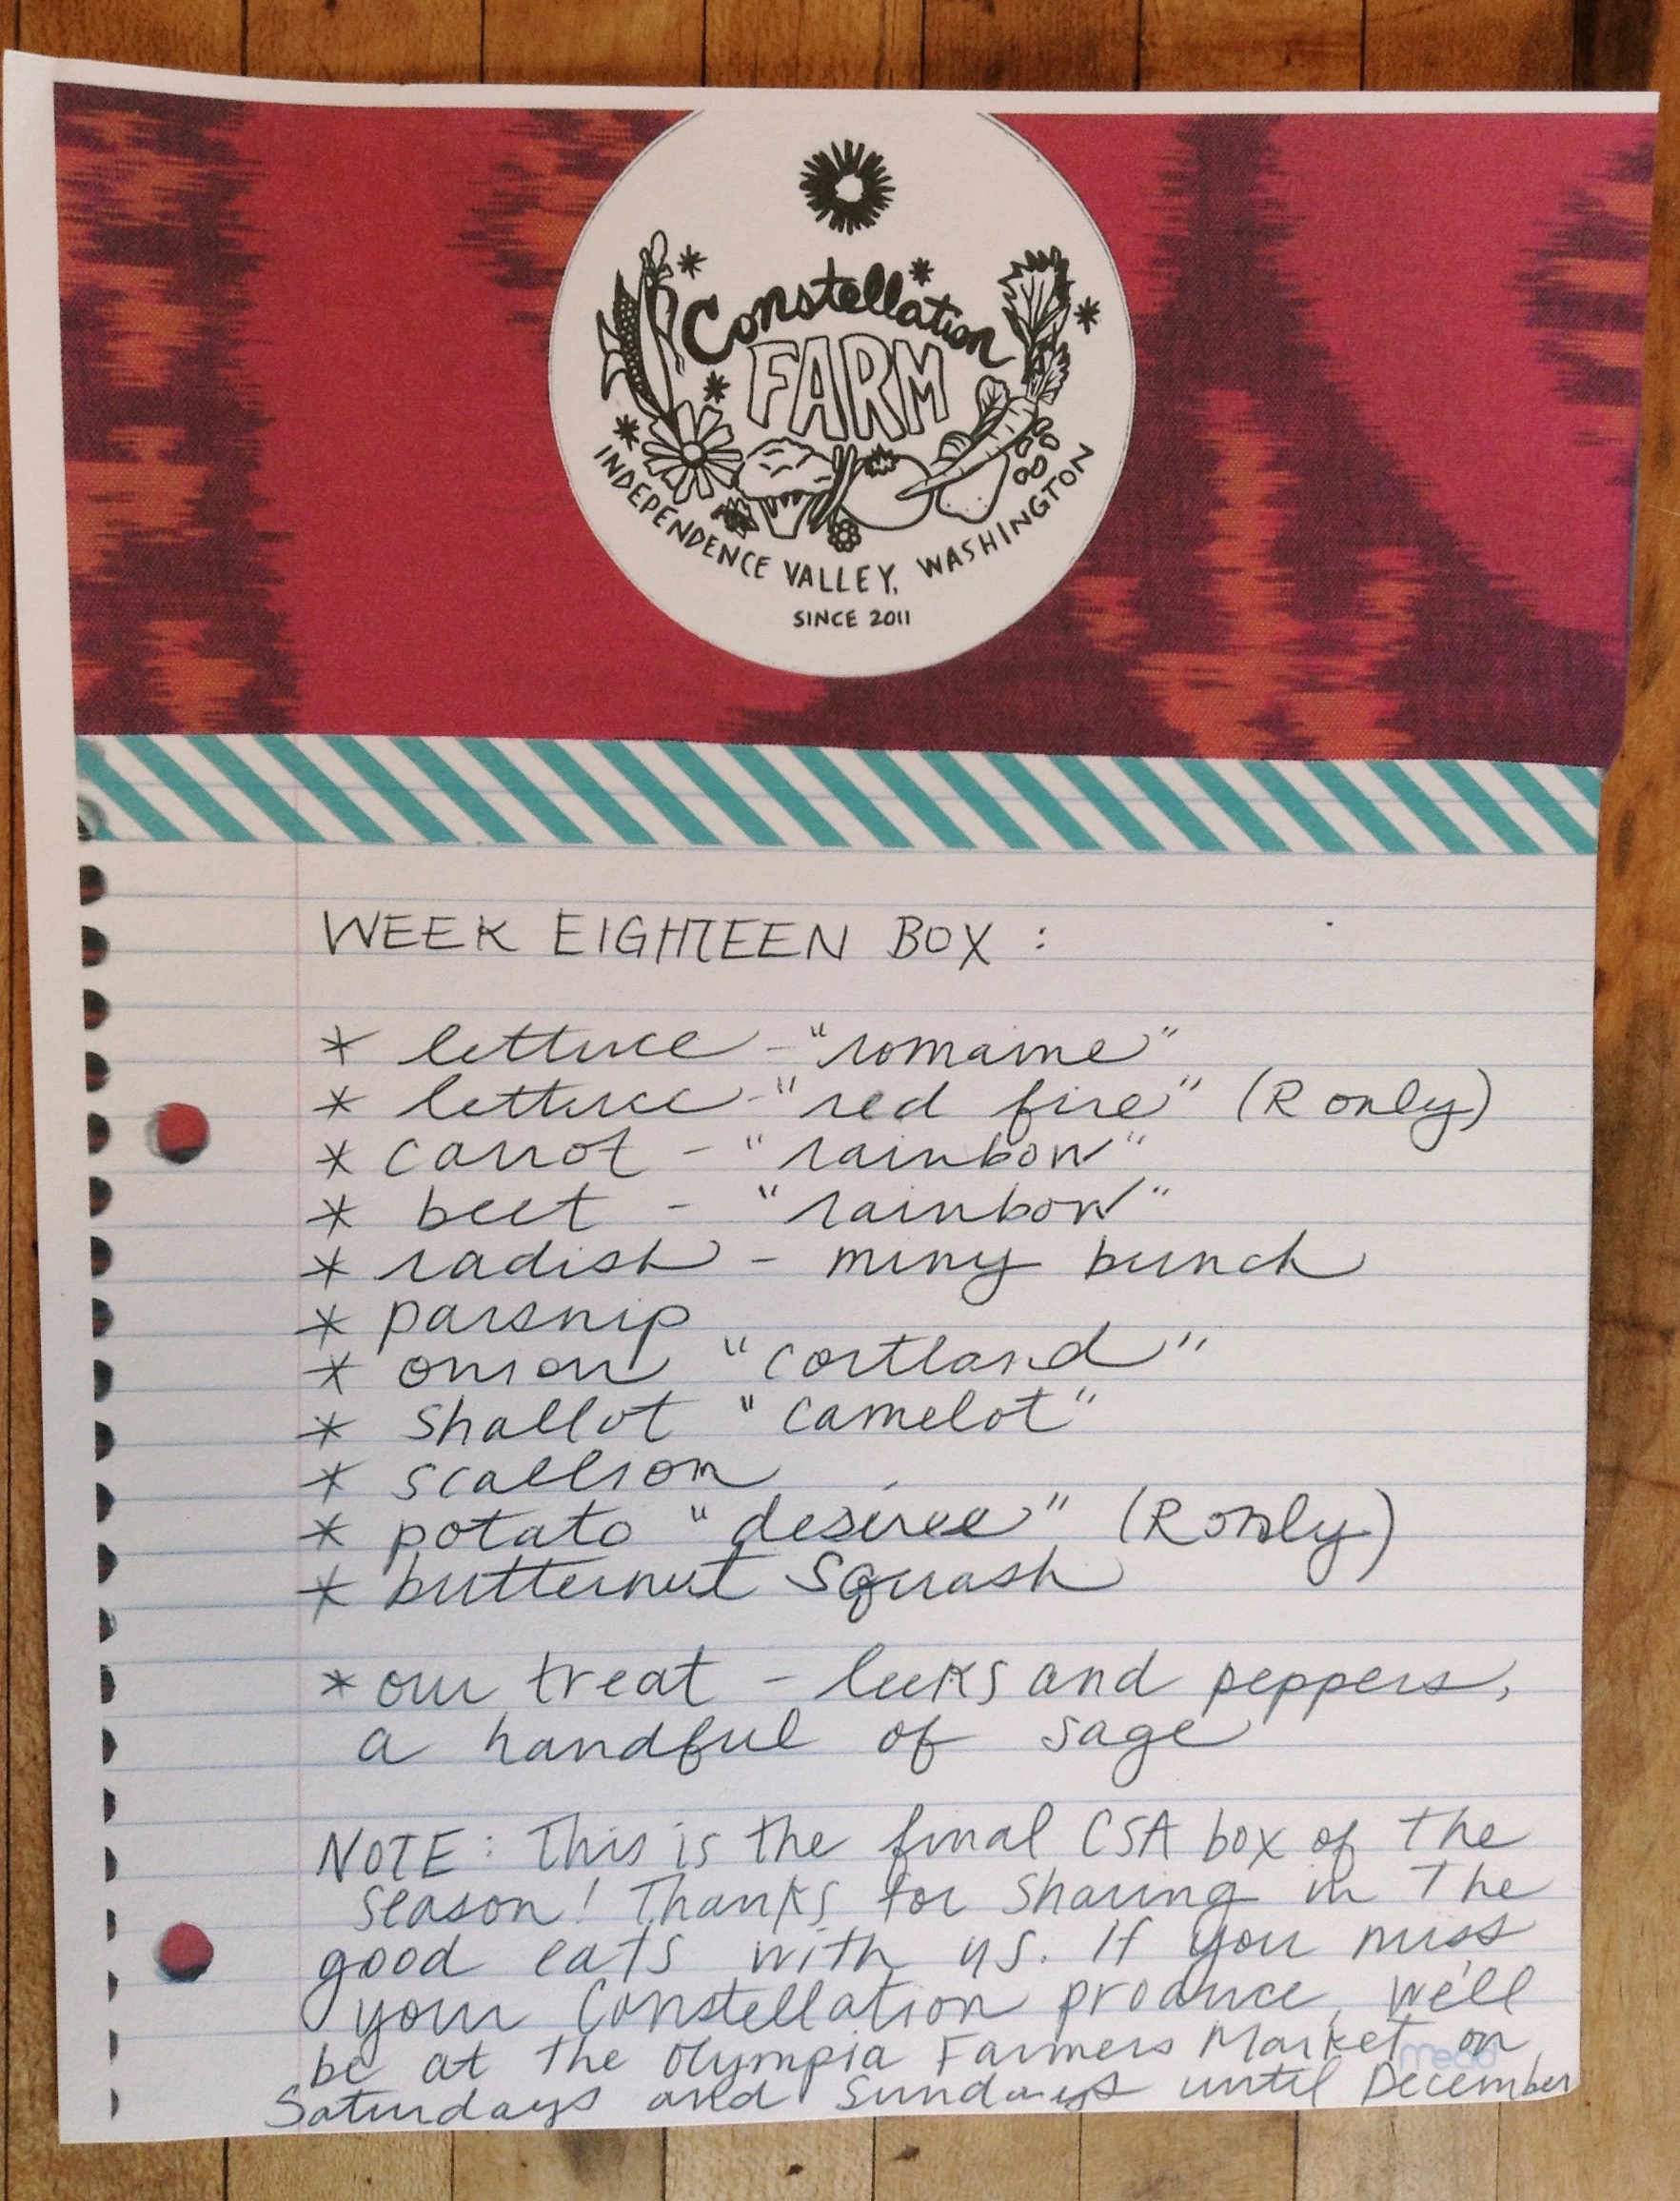 Constellation
FARM
INDEPENDENCE VALLEY, WASHINGTON
SINCE 2011
WEEK EIGHTEEN BOX :
* lettuce - "romaine"
* lettuce - "red fire" (R only)
* carrot - "rainbow"
* beet - "rainbow"
* radish - miny bunch
* parsnip
* onion "cortland"
* shallot "camelot"
* scallion
* potato "desiree" (R only)
* butternut squash
* our treat - leeks and peppers,
a handful of sage
NOTE: This is the final CSA box of the
season! Thanks for sharing in the
good eats with us. If you miss
your Constellation produce, we'll
be at the Olympia Farmers Market on
Saturdays and Sundays until December
mead